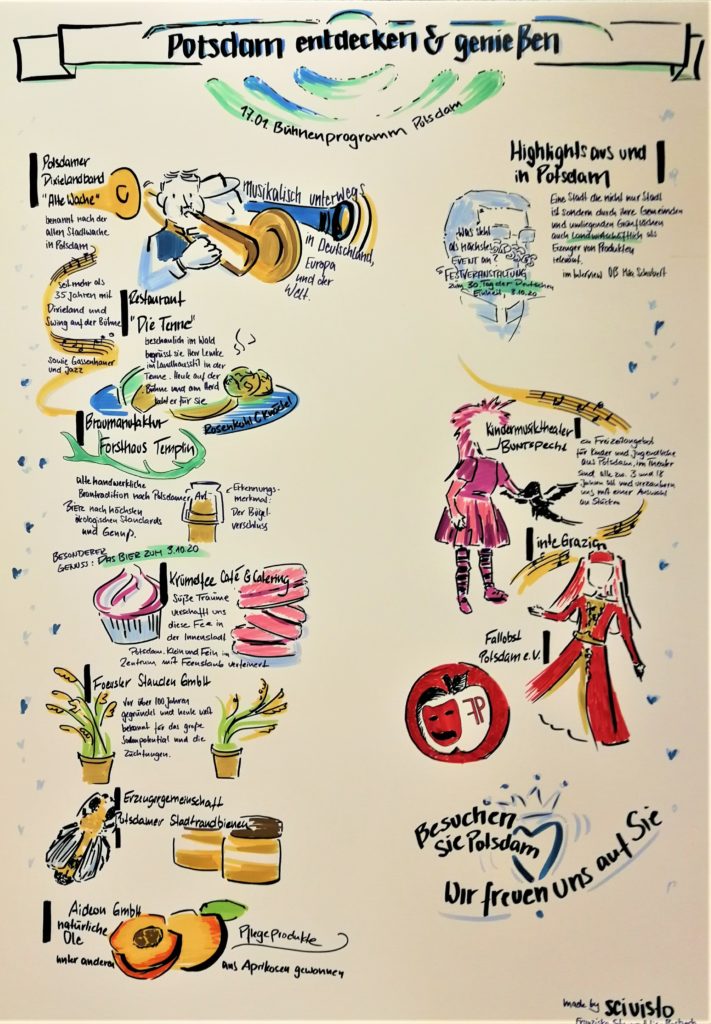 Potsdam entdecken & genießen
17.01. Bühnenprogramm Potsdam
Potsdamer
Dixielandband
"Alte Wache"
benannt nach der
alten Stadtwache
in Potsdam
Musikalisch unterwegs
in Deutschland,
Europa
und der
Welt.
seit mehr als
35 Jahren mit
Dixieland und
Swing auf der Bühne
sowie Gassenhauer
und Jazz
Restaurant
"Die Tenne"
beschaulich im Wald
begrüsst sie Herr Lemke
im Landhausstil in der
Tenne. Heute auf der
Bühne und am Herd
kocht er für Sie
Rosenkohl & Knödel
Braumanufaktur
Forsthaus Templin
alte handwerkliche
Brautradition nach Potsdamer Art.
Bier nach höchsten
ökologischen Standards
und Genuss.
Erkennungs-
merkmal:
Der Bügel-
verschluss
BESONDERER
GENUSS: DAS BIER ZUM 3.10.20
Krümelfee Café & Catering
Süße Träume
verschafft uns
diese Fee in
der Innenstadt
Potsdam. Klein und Fein im
Zentrum mit Feenstaub verfeinert
Foerster Stauden GmbH
Vor über 100 Jahren
gegründet und heute welt
bekannt für das große
potential und die
Züchtungen.
Erzeugergemeinschaft
Potsdamer Stadtrandbienen
Aideon GmbH
natürliche
Öle
unter anderen
Pflegeprodukte
aus Aprikosen gewonnen
Highlights aus und
in Potsdam
Eine Stadt die nicht nur Stadt
ist sondern durch ihre Gemeinden
und umliegenden Grünflächen
auch Landwirtschaftlich als
Erzeuger von Produkten
relevant.
im Interview OB Mike Schubert
WAS steht
als nächstes
EVENT an?
FESTVERANSTALTUNG
zum 30. Tag der Deutschen
Einheit, 3.10.20
Kindermusiktheater
BUNTSPECHT
ein Freizeitangebot
für Kinder und Jugendliche
aus Potsdam, im Theater
sind alle zw. 3 und 18
Jahren alt und verzaubern
uns mit einer Auswahl
an Stücken
inte Grazien
Fallobst
Potsdam e.V.
FP
Besuchen
Sie Potsdam
Wir freuen uns auf Sie
made by scivisto